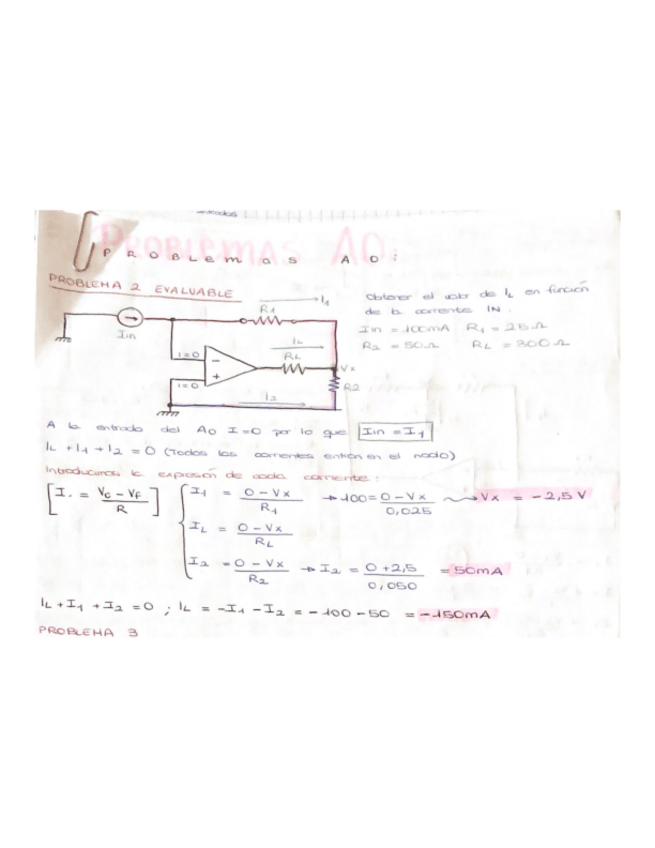 PROBLEMAS AO:
PROBLEMAS AO:
PROBLEMA 2 EVALUABLE
Obtener el valor de IL en función
de la corriente IN.
Iin = 100mA R1 = 25Ω
R2 = 50Ω RL = 300Ω
I1
R1
Iin
I=0
IL
RL
Vx
I=0
R2
I2
- +
A la entrada del AO I=0 por lo que Iin = I1
IL + I1 + I2 = 0 (Todas las corrientes entran en el nodo)
Introducimos la expresión de cada corriente:
[I. = (Vc - Vf)/R] { I1 = (0 - Vx)/R1 → 100 = (0 - Vx)/0,025 Vx = -2,5 V
IL = (0 - Vx)/RL
I2 = (0 - Vx)/R2 → I2 = (0 + 2,5)/0,050 = 50mA
IL + I1 + I2 = 0 ; IL = -I1 - I2 = -100 - 50 = -150mA
PROBLEMA 3